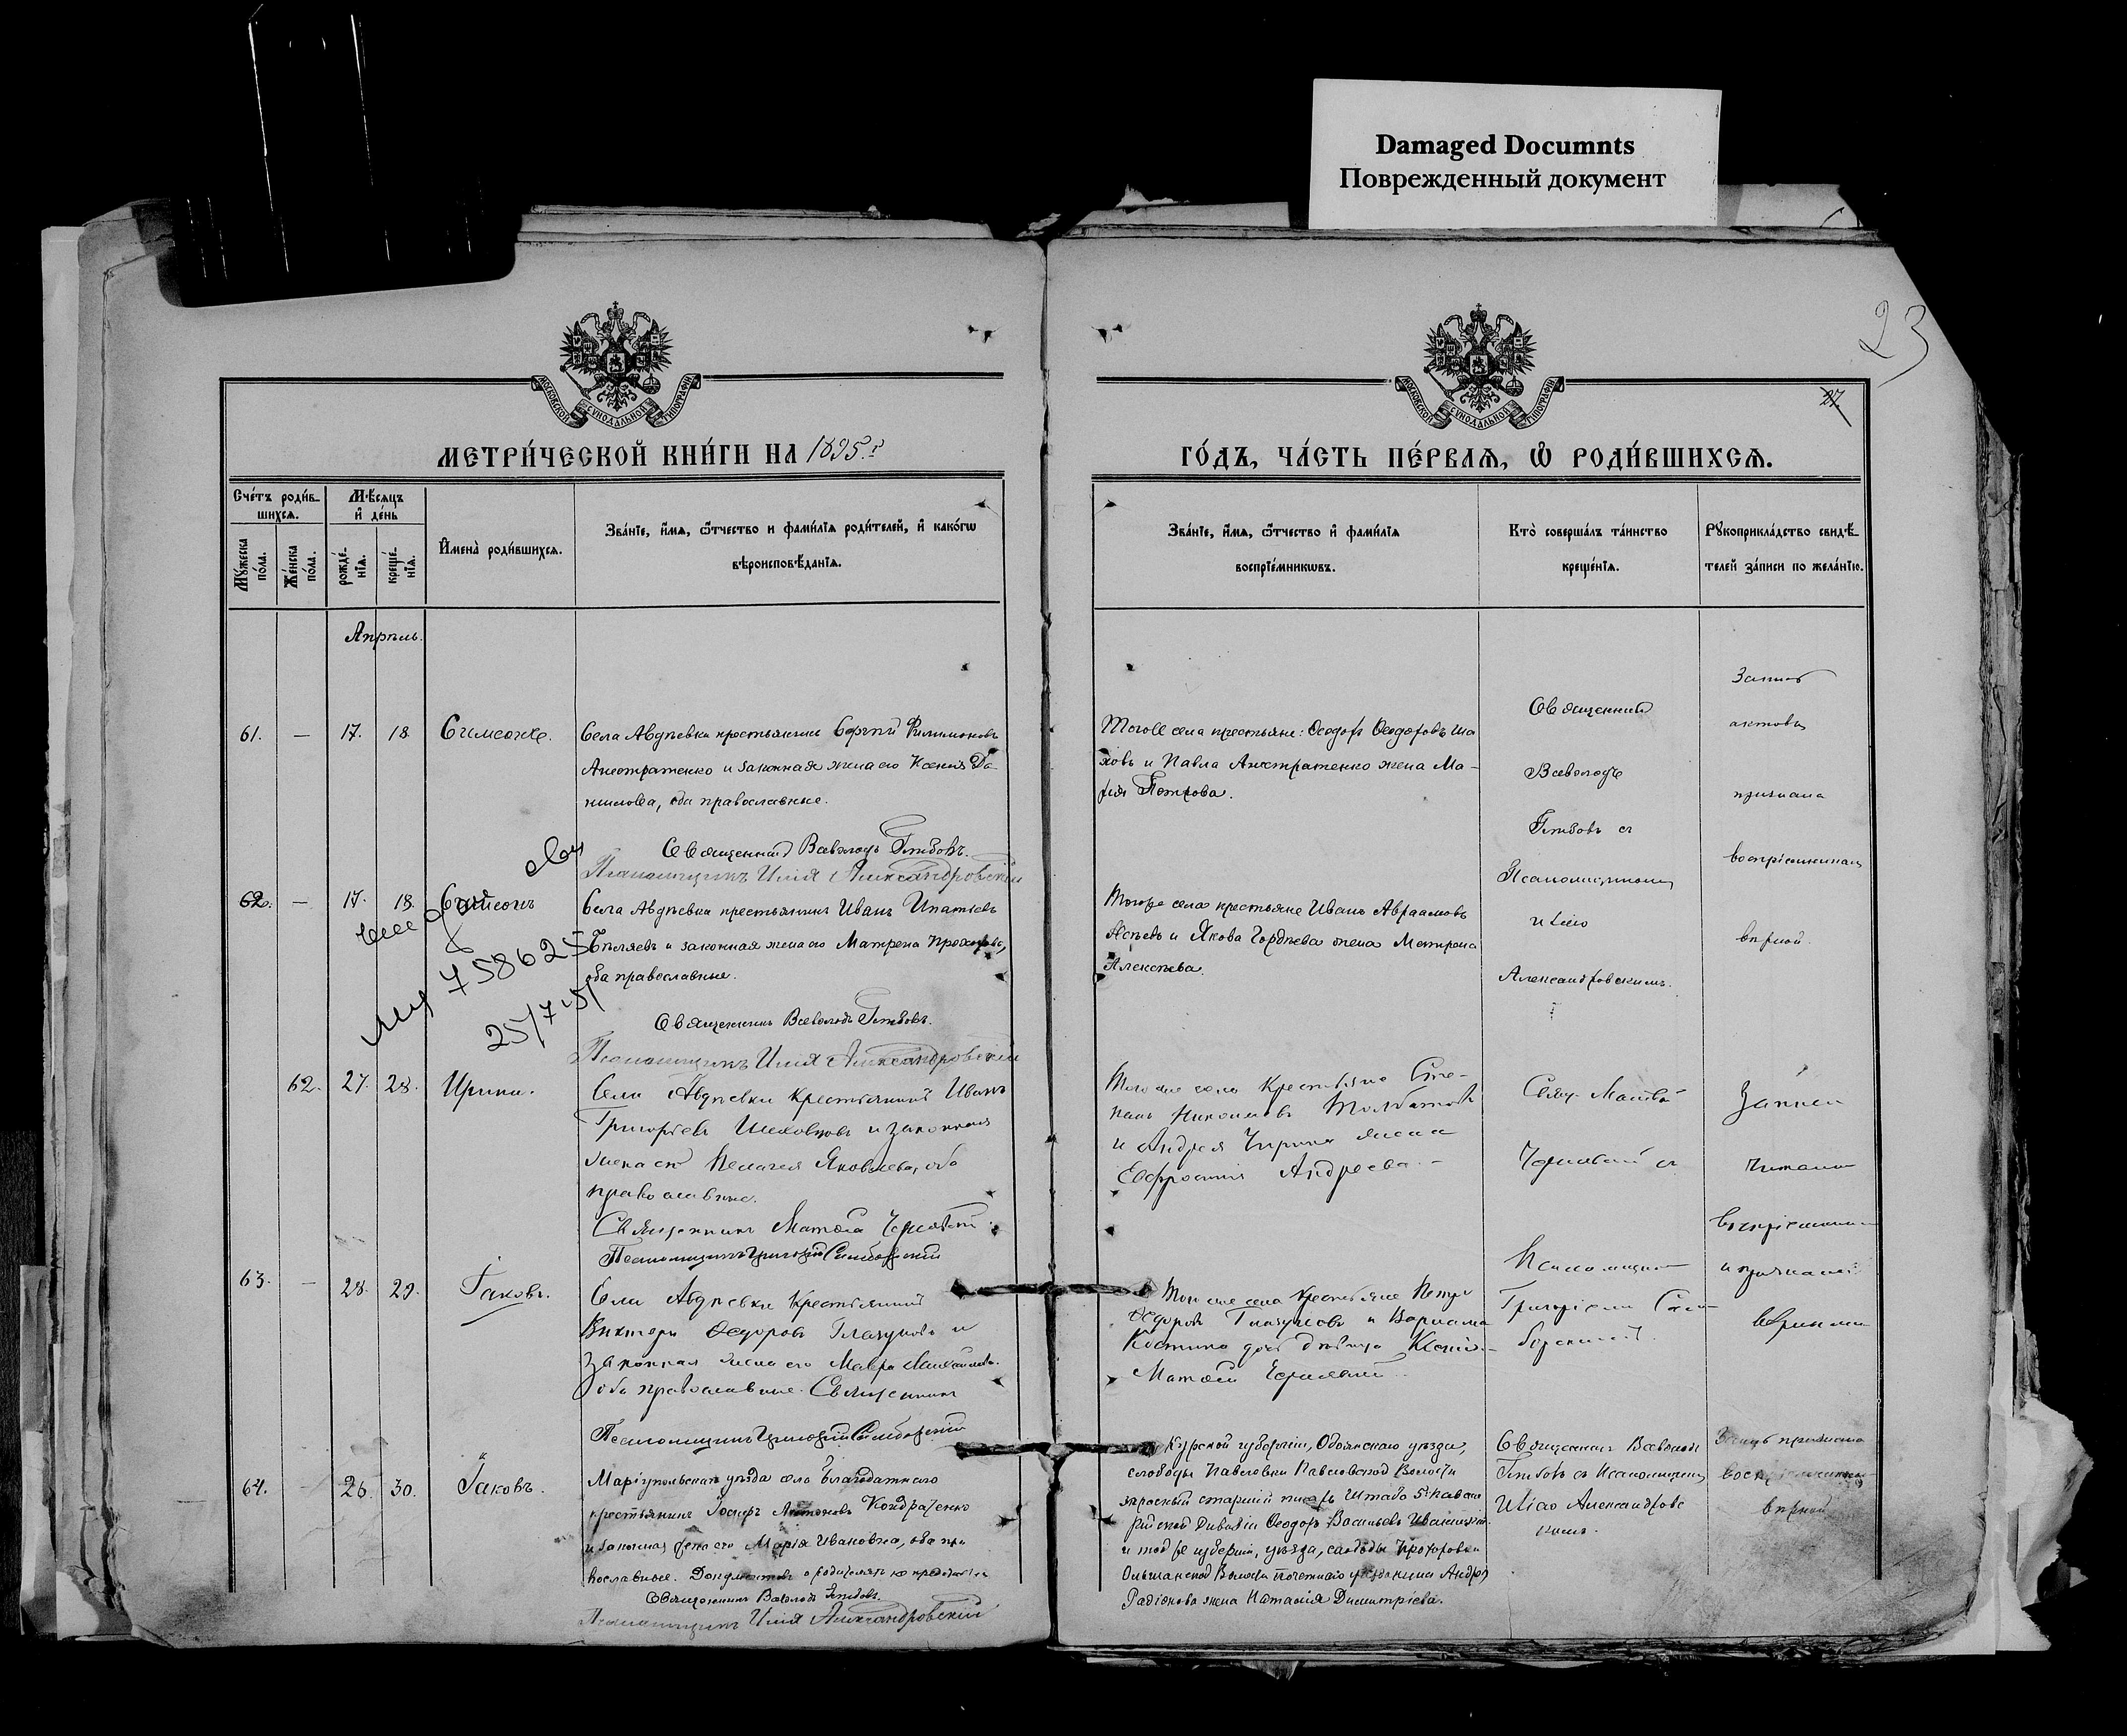 Damaged Documnts
Поврежденный документ
23
27
МОСКОВСКОЙ СѴНОДАЛЬНОЙ ТИПОГРАФІИ
МОСКОВСКОЙ СѴНОДАЛЬНОЙ ТИПОГРАФІИ
МЕТРИ́ЧЕСКОЙ КНИ́ГИ НА 1895 г.
ГО́ДЪ, ЧА́СТЬ ПЕ́РВАЯ, Ѡ РОДИ́ВШИХСЯ.
Сче́тъ роди́в-
шихся.
Мꙋ́жеска по́ла.
Же́нска по́ла.
Мѣ́сяцъ
и҆ де́нь
рожде́-
нїя.
креще́-
нїя.
И҆мена̀ роди́вшихся.
Зва́нїе, и҆́мя, ѻ҆́тчество и фами́лїя роди́телей, и҆ како́гѡ
вѣроисповѣ́данїя.
Зва́нїе, и҆́мя, ѻ҆́тчество и҆ фами́лїя
воспрїе́мникѡвъ.
Кто̀ соверша́лъ та́инство
креще́нїя.
Рꙋкоприкла́дство свидѣ́-
телей за́писи по жела́нїю.
Апрѣль.
61. — 17. 18. Сѵмеонъ.
Села Авдѣевки крестьянинъ Сергѣй Филимоновъ
Анистратенко и законная жена его Ксенія Да-
нилова, оба православные.
Священникъ Всеволодъ Глѣбовъ.
Псаломщикъ Илія Александровскій
Тогоже села крестьяне: Ѳеодоръ Ѳеодоровъ Ша
ховъ и Павла Анистратенко жена Ма-
рія Петрова.
Священникъ
Всеволодъ
Глѣбовъ съ
Псаломщикомъ
Иліею
Александровскимъ.
актовъ
признана
воспріемниками
вѣрной.
62. — 17. 18. Сѵмеонъ
758625
25/7-51
Села Авдѣевки крестьянинъ Иванъ Ипатіевъ
Бѣляевъ и законная жена его Матрена Прохорова,
оба православные.
Священникъ Всеволодъ Глѣбовъ.
Псаломщикъ Илія Александровскій
Тогоже села крестьяне Иванъ Авраамовъ
и Якова Гордѣева жена Матрона
Алексѣева.
62. 27. 28. Ирина.
Села Авдѣевки крестьянинъ Иванъ
Григорьевъ Шаховцовъ и законная
жена его Пелагея Яковлева, оба
православные.
Священникъ Матѳей Чернявскій
Псаломщикъ Григорій Симборскій
Того же села крестьяне Сте-
панъ
и Андрея Чирина жена
Евфросинія Андреева.
Свящ. Матѳей
съ
Псаломщикомъ
Григоріемъ Сим-
борскимъ.
Записи
читали
воспріемники
и признали
вѣрными
63. — 28. 29. Іаковъ.
Села Авдѣевки крестьянинъ
Викторъ Ѳедоровъ Глазуновъ и
законная жена его Мавра Михайлова.
оба православные. Священникъ
Матѳей Чернявскій.
Псаломщикъ Григорій Симборскій
Того же села крестьяне Петръ
Ѳедоровъ Глазуновъ и Варлама
Костина дочь дѣвица Ксенія.
64. — 26. 30. Іаковъ.
Маріупольскаго уѣзда села Благодатнаго
крестьянинъ Іосифъ Антоновъ Кондратенко
и законная жена его Марія Ивановна, оба пра
вославные. Документовъ о родителяхъ не представлено
Священникъ Всеволодъ Глѣбовъ.
Псаломщикъ Илія Александровскій
Курской губерніи, Обоянскаго уѣзда,
слободы Павловки Павловской Волости
запасный старшій писарь Штаба 5й кавале
рійской Дивизіи Ѳеодоръ Васильевъ
и той же губерніи, уѣзда, слободы Прохоровки
Ольшанской Волости почетнаго гражданина Андрея
Радіонова жена Наталія Димитріева.
Священникъ Всеволодъ
Глѣбовъ съ Псаломщикомъ
Иліею Александровс
кимъ.
Запись признана
воспріемниками
вѣрной